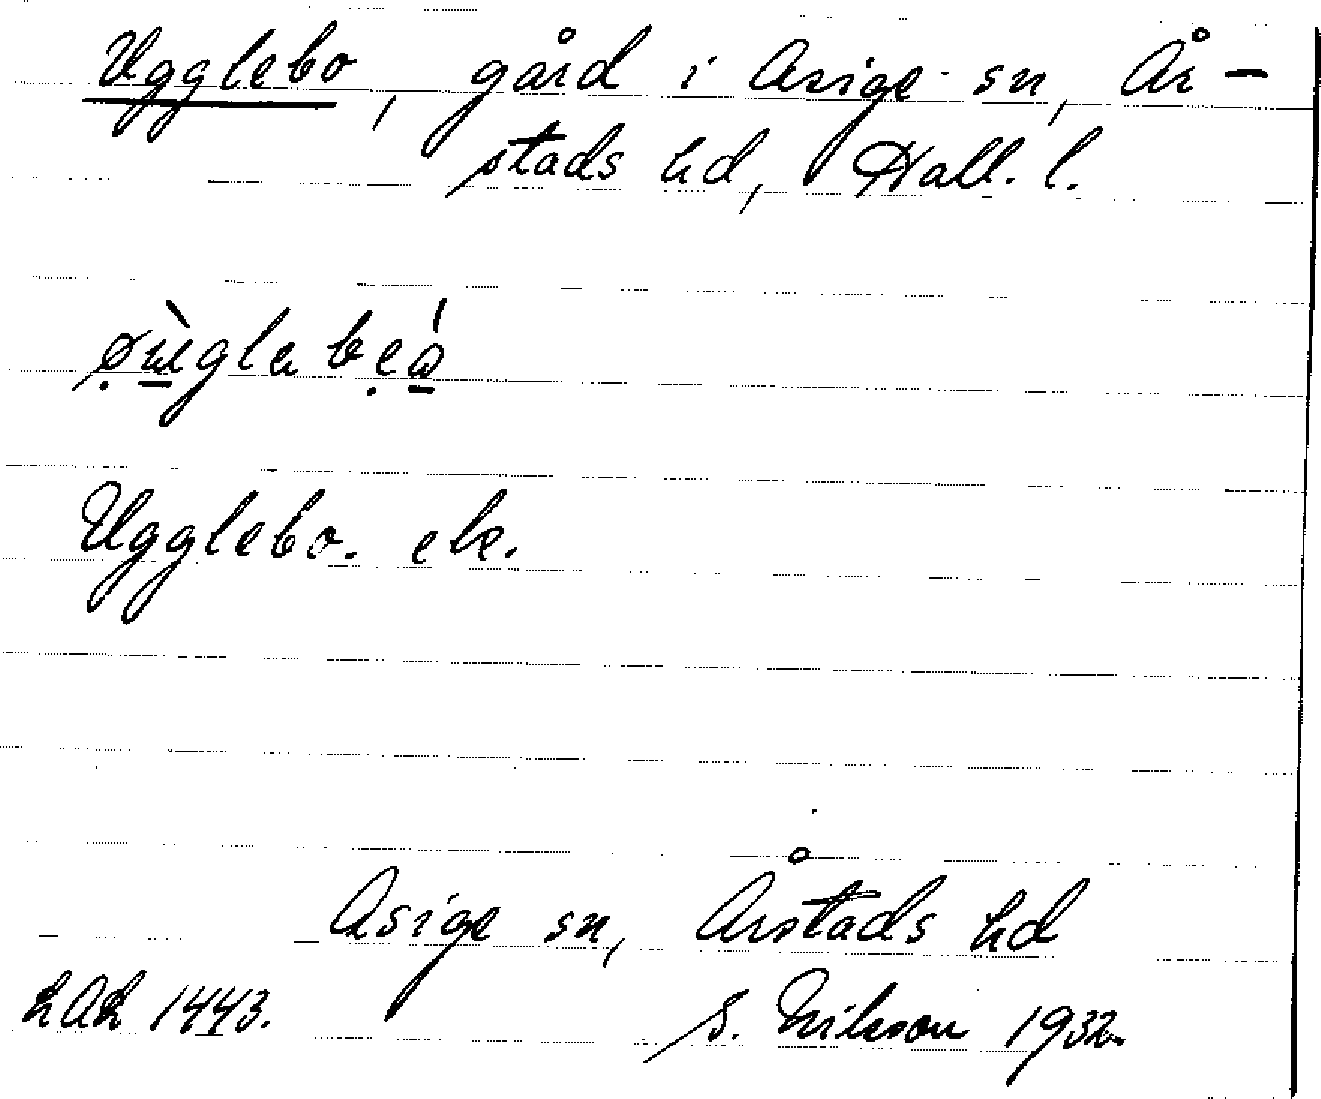 Ugglebo, gård i Asige sn, År-
stads hd, Hall. l.
Ugglebo. ek.
Asige sn, Årstads hd
LAL 1443. S. Nilsson 1932.